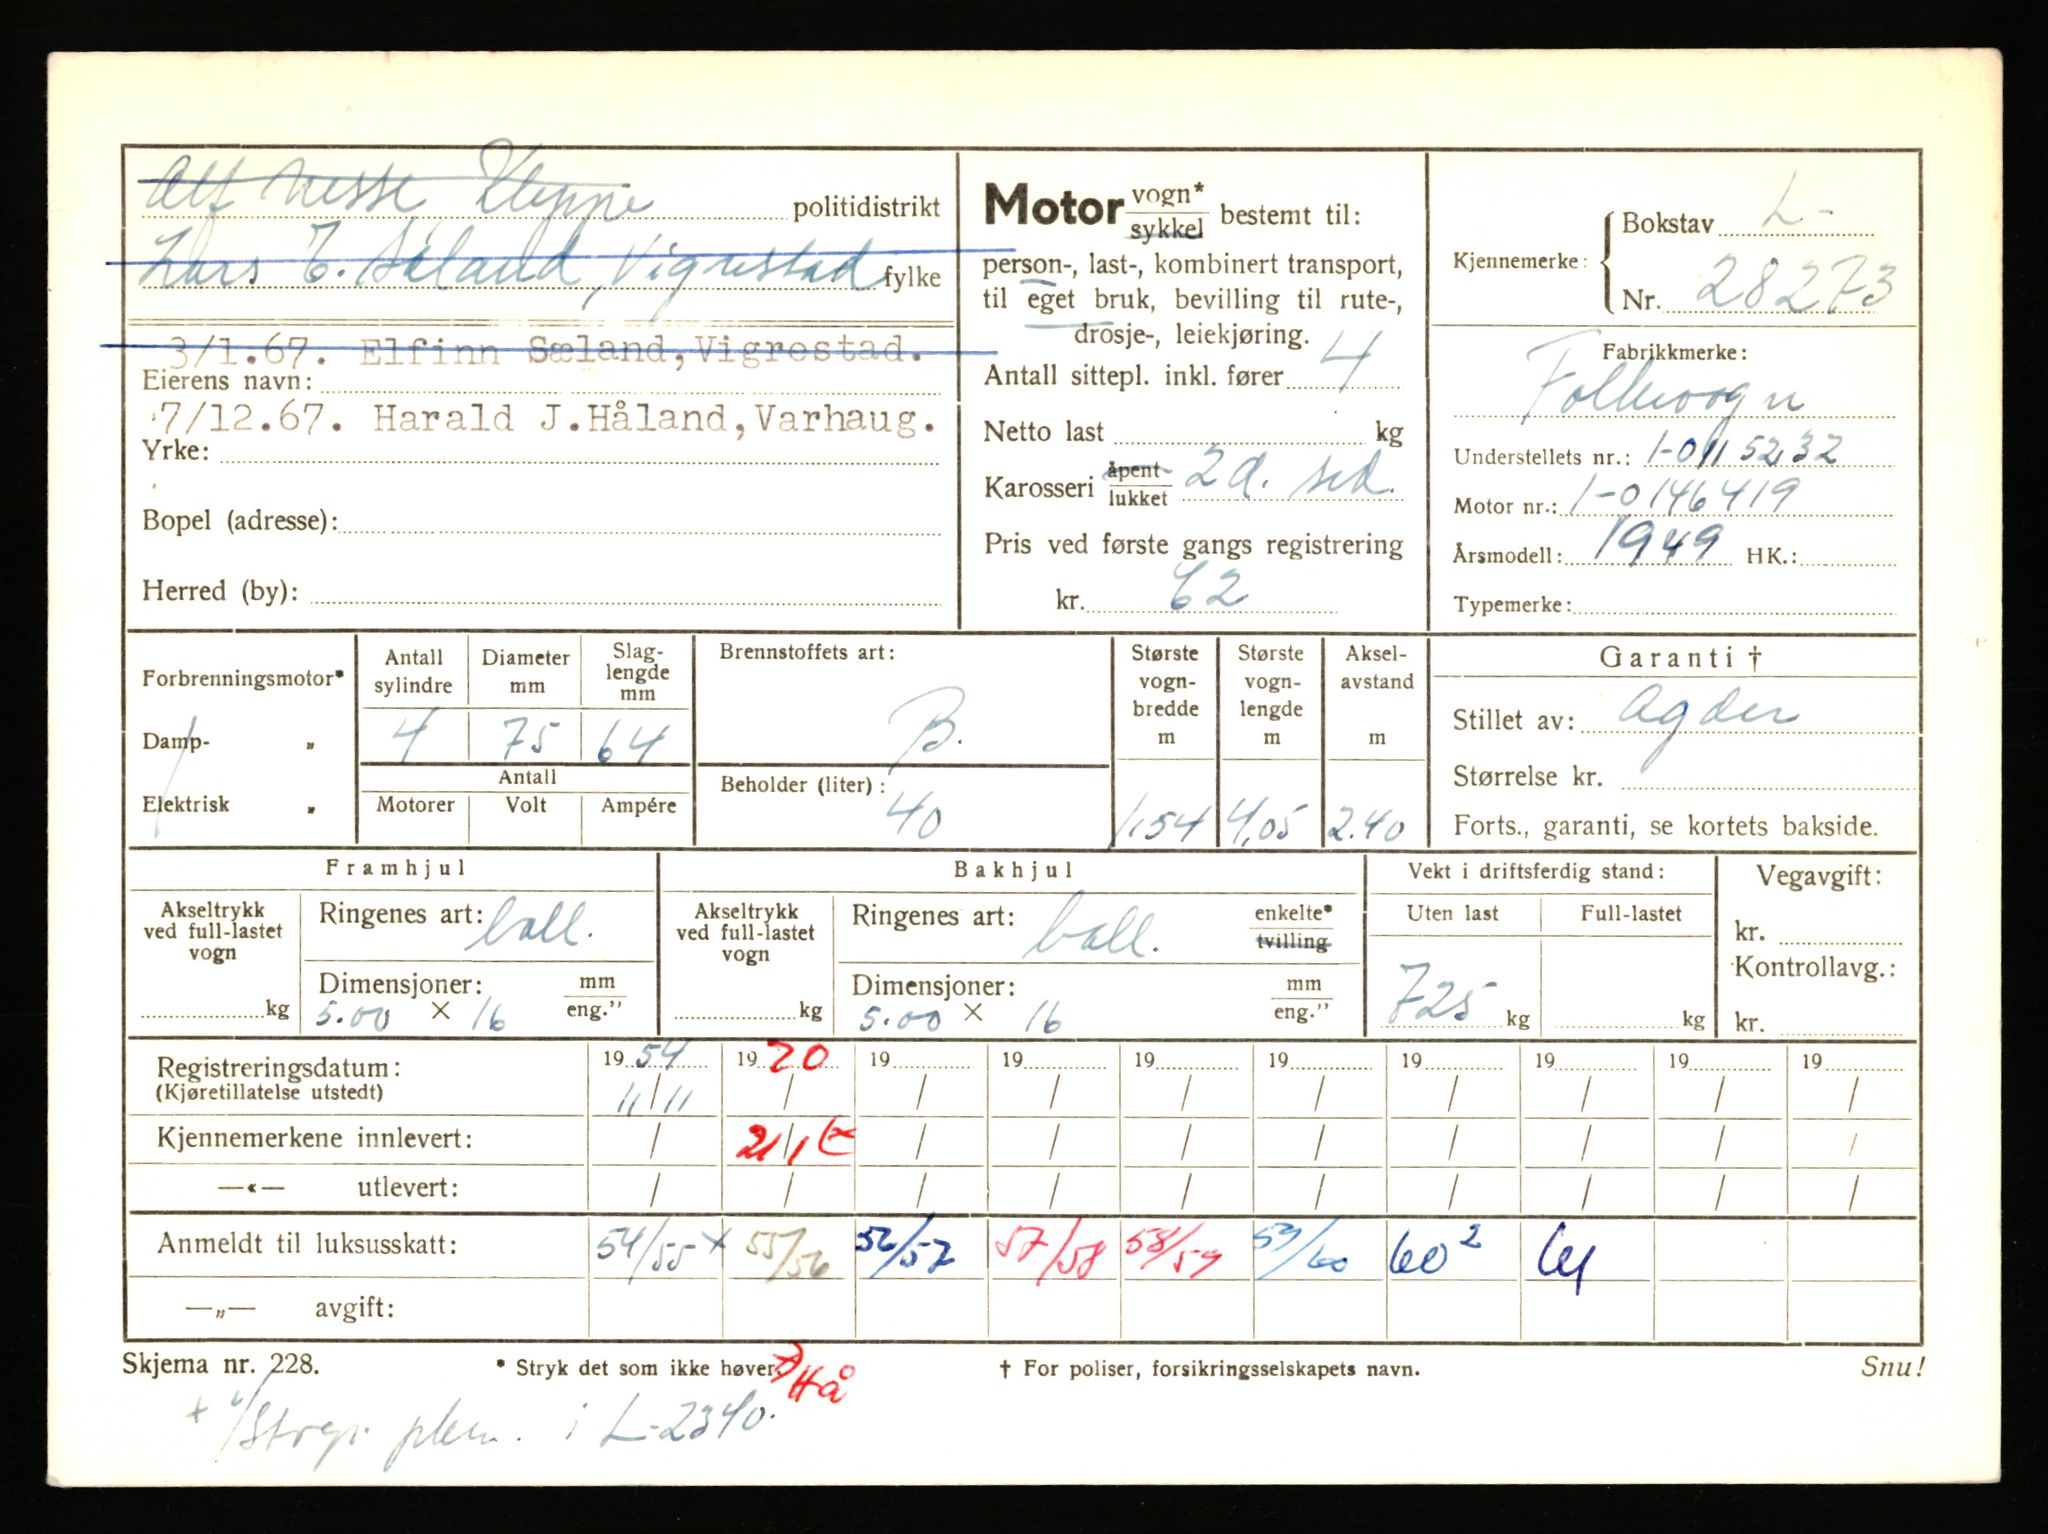 Alf Nesse Kleppe politidistrikt
Lars T. Sæland, Vigrestad fylke
3/1.67. Elfinn Sæland, Vigrestad.
Eierens navn:
7/12.67. Harald J.Håland, Varhaug.
Yrke:
Bopel (adresse):
Herred (by):
Motor vogn* sykkel bestemt til:
person-, last-, kombinert transport,
til eget bruk, bevilling til rute-,
drosje-, leiekjøring.
Antall sittepl. inkl. fører 4
Netto last kg
Karosseri åpent lukket 2d. sed.
Pris ved første gangs registrering
kr. 62
Kjennemerke: Bokstav L-
Nr. 28273
Fabrikkmerke:
Folkevogn
Understellets nr.: 1-0115232
Motor nr.: 1-0146419
Årsmodell: 1949 HK.:
Typemerke:
Forbrenningsmotor*
Damp- „
Elektrisk „
Antall sylindre Diameter mm Slag-lengde mm
4 75 64
Antall
Motorer Volt Ampére
Brennstoffets art:
B.
Beholder (liter):
40
Største vogn-bredde m Største vogn-lengde m Aksel-avstand m
1,54 4,05 2.40
Garanti †
Stillet av: Agder
Størrelse kr.
Forts., garanti, se kortets bakside.
Framhjul
Akseltrykk ved full-lastet vogn
kg
Ringenes art: ball.
Dimensjoner: mm eng."
5.00 × 16
Bakhjul
Akseltrykk ved full-lastet vogn
kg
Ringenes art: ball. enkelte* tvilling
Dimensjoner: mm eng."
5.00 × 16
Vekt i driftsferdig stand:
Uten last Full-lastet
725 kg kg
Vegavgift:
kr.
Kontrollavg.:
kr.
Registreringsdatum: 1954 1970 19 19 19 19 19 19 19 19
(Kjøretillatelse utstedt) 11/11 / / / / / / / / /
Kjennemerkene innlevert: / 21/1 / / / / / / / /
—«— utlevert: / / / / / / / / / /
Anmeldt til luksusskatt: 54/55 x 55/56 56/57 57/58 58/59 59/60 60² 61
—„— avgift:
Skjema nr. 228. * Stryk det som ikke høver. † For poliser, forsikringsselskapets navn. Snu!
Hå
i L-2340.